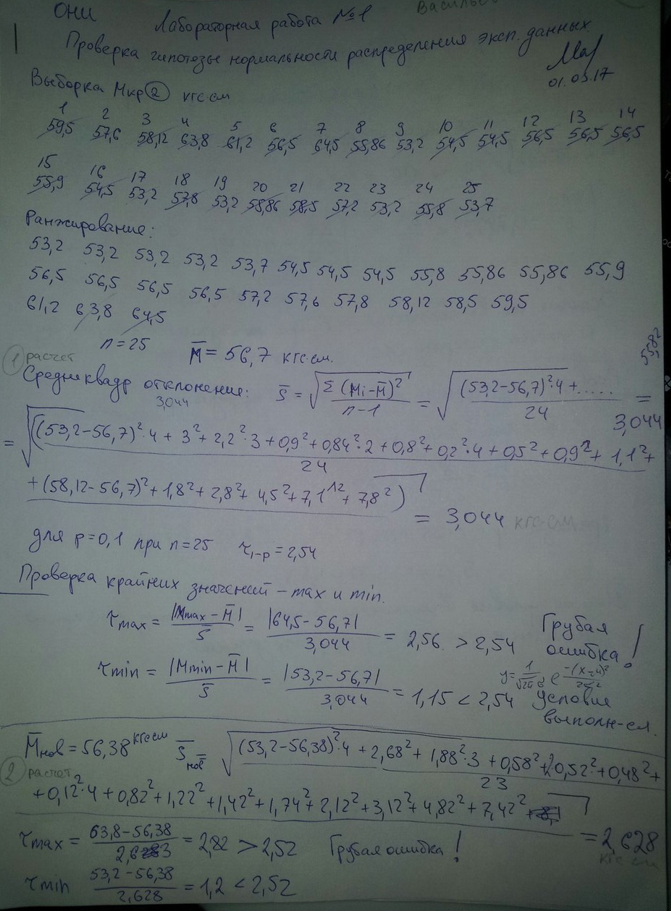 ОНИ Лабораторная работа №1
Проверка гипотезы нормальности распределения эксп. данных
01.03.17
Выборка Мкр ② кгс·см
1 2 3 4 5 6 7 8 9 10 11 12 13 14
59,5 57,6 58,12 63,8 61,2 56,5 64,5 55,86 53,2 54,5 54,5 56,5 56,5 56,5
15 16 17 18 19 20 21 22 23 24 25
55,9 54,5 53,2 57,8 53,2 58,86 58,5 57,2 53,2 55,8 53,7
Ранжирование:
53,2 53,2 53,2 53,2 53,7 54,5 54,5 54,5 55,8 55,86 55,86 55,9
56,5 56,5 56,5 56,5 57,2 57,6 57,8 58,12 58,5 59,5
61,2 63,8 64,5
n=25 M̄ = 56,7 кгс·см.
① расчет
Средн квадр отклонения: S̄ = √(Σ(Mi-M̄)²/(n-1)) = √(((53,2-56,7)²·4+......)/24) =
3,044
3,044
= √(((53,2-56,7)²·4 + 3² + 2,2²·3 + 0,9² + 0,84²·2 + 0,8² + 0,2²·4 + 0,5² + 0,9² + 1,1² +
24
+ (58,12-56,7)² + 1,8² + 2,8² + 4,5² + 7,1² + 7,8²) = 3,044 кгс·см
для p=0,1 при n=25 τ₁₋ₚ = 2,54
Проверка крайних значений – max и min.
τmax = |Mmax - M̄|/S̄ = |64,5-56,7|/3,044 = 2,56 > 2,54 Грубая ошибка!
τmin = |Mmin - M̄|/S̄ = |53,2-56,7|/3,044 = 1,15 < 2,54 условия выполн-ся.
M̄нов = 56,38 кгс·см S̄нов √((53,2-56,38)²·4 + 2,68² + 1,88²·3 + 0,58² + 0,52² + 0,48² +
② расчет
23
+ 0,12²·4 + 0,82² + 1,22² + 1,42² + 1,74² + 2,12² + 3,12² + 4,82² + 7,42² = 2,628
кгс·см
τmax = (63,8-56,38)/2,6283 = 2,82 > 2,52 Грубая ошибка!
τmin (53,2-56,38)/2,628 = 1,2 < 2,52